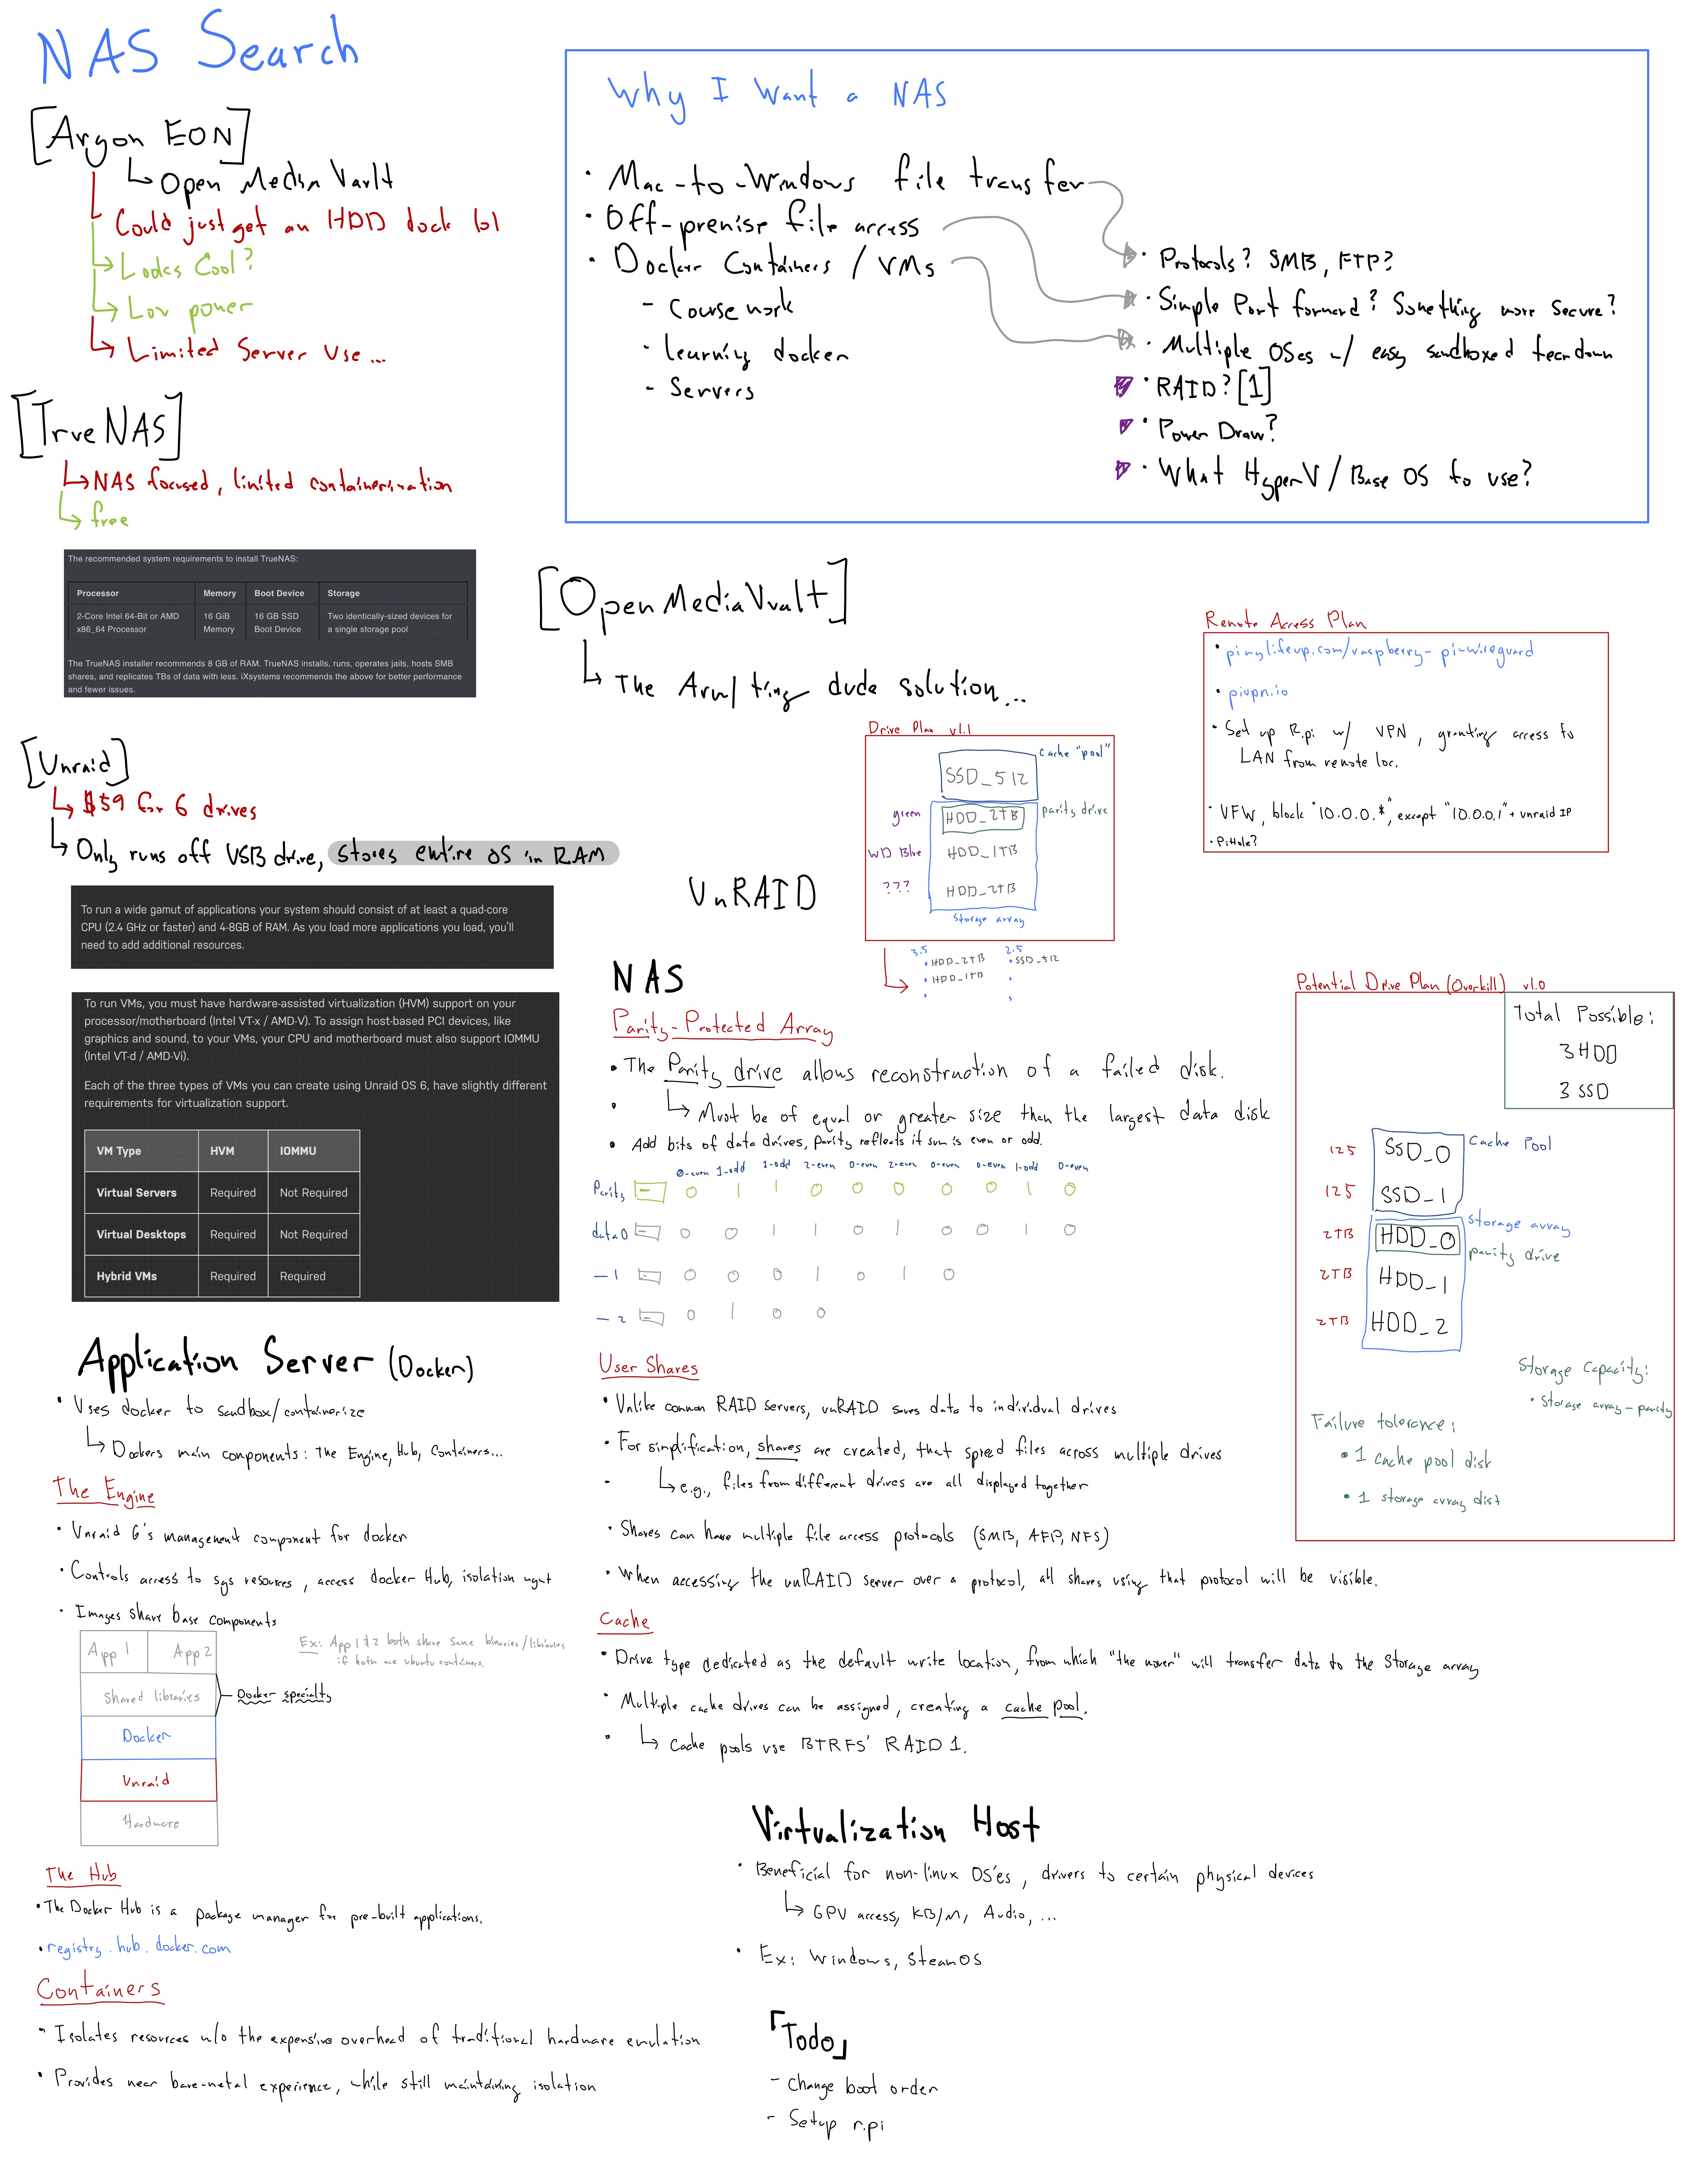 NAS Search
[Argon EON]
↳ Open Media Vault
Could just get an HDD dock lol
↳ Looks Cool?
↳ Low power
↳ Limited Server Use...
[TrueNAS]
↳ NAS focused, limited containerization
↳ free
The recommended system requirements to install TrueNAS:
Processor Memory Boot Device Storage
2-Core Intel 64-Bit or AMD x86_64 Processor 16 GiB Memory 16 GB SSD Boot Device Two identically-sized devices for a single storage pool
The TrueNAS installer recommends 8 GB of RAM. TrueNAS installs, runs, operates jails, hosts SMB
shares, and replicates TBs of data with less. iXsystems recommends the above for better performance
and fewer issues.
Why I Want a NAS
· Mac-to-Windows file transfer
· Off-premise file access
· Docker Containers / VMs
- Course work
· learning docker
- Servers
· Protocols? SMB, FTP?
· Simple Port forward? Something more Secure?
· Multiple OSes w/ easy sandboxed teardown
· RAID? [1]
· Power Draw?
· What HyperV / Base OS to use?
[OpenMediaVvalt]
↳ The Arm/ting dude solution...
Remote Access Plan
· pimylifeup.com/raspberry-pi-wireguard
· pivpn.io
· Set up R.pi w/ VPN, granting access to
LAN from remote loc.
· UFW, block "10.0.0.*", except "10.0.0.1" + unraid IP
· PiHole?
[Unraid]
↳ $59 for 6 drives
↳ Only runs off USB drive, stores entire OS in RAM
To run a wide gamut of applications your system should consist of at least a quad-core
CPU (2.4 GHz or faster) and 4-8GB of RAM. As you load more applications you load, you'll
need to add additional resources.
To run VMs, you must have hardware-assisted virtualization (HVM) support on your
processor/motherboard (Intel VT-x / AMD-V). To assign host-based PCI devices, like
graphics and sound, to your VMs, your CPU and motherboard must also support IOMMU
(Intel VT-d / AMD-Vi).
Each of the three types of VMs you can create using Unraid OS 6, have slightly different
requirements for virtualization support.
VM Type HVM IOMMU
Virtual Servers Required Not Required
Virtual Desktops Required Not Required
Hybrid VMs Required Required
Drive Plan v1.1
cache "pool"
SSD_512
green HDD_2TB parity drive
WD Blue HDD_1TB
??? HDD_2TB
storage array
3.5 2.5
· HDD_2TB · SSD_512
· HDD_1TB ·
· ·
UnRAID
NAS
Parity-Protected Array
· The Parity drive allows reconstruction of a failed disk.
· ↳ Must be of equal or greater size than the largest data disk
· Add bits of data drives, parity reflects if sum is even or odd.
0-even 1-odd 1-odd 2-even 0-even 2-even 0-even 0-even 1-odd 0-even
Parity 0 1 1 0 0 0 0 0 1 0
data 0 0 0 1 1 0 1 0 0 1 0
— 1 0 0 0 1 0 1 0
— 2 0 1 0 0
Potential Drive Plan (Overkill) v1.0
Total Possible:
3 HDD
3 SSD
125 SSD_0 Cache Pool
125 SSD_1
storage array
2TB HDD_0
parity drive
2TB HDD_1
2TB HDD_2
Storage Capacity:
· Storage array - parity
Failure tolerance:
· 1 cache pool dist
· 1 storage array dist
User Shares
· Unlike common RAID servers, unRAID saves data to individual drives
· For simplification, shares are created, that spread files across multiple drives
· ↳ e.g., files from different drives are all displayed together
· Shares can have multiple file access protocols (SMB, AFP, NFS)
· When accessing the unRAID server over a protocol, all shares using that protocol will be visible.
Cache
· Drive type dedicated as the default write location, from which "the mover" will transfer data to the storage array
· Multiple cache drives can be assigned, creating a cache pool.
· ↳ Cache pools use BTRFS' RAID 1.
Application Server (Docker)
· Uses docker to sandbox/containerize
↳ Dockers main components: The Engine, Hub, Containers...
The Engine
· Unraid 6's management component for docker
· Controls access to sys resources, access docker Hub, isolation mgnt
· Images share base components
App 1 App 2
Ex: App 1 & 2 both share same binaries/libraries
if both are ubuntu containers.
Shared libraries
Docker specialty
Docker
Unraid
Hardware
The Hub
· The Docker Hub is a package manager for pre-built applications.
· registry.hub.docker.com
Containers
· Isolates resources w/o the expensive overhead of traditional hardware emulation
· Provides near bare-metal experience, while still maintaining isolation
Virtualization Host
· Beneficial for non-linux OS'es, drivers to certain physical devices
↳ GPU access, KB/M, Audio, ...
· Ex: Windows, SteamOS
「Todo」
- Change boot order
- Setup r.pi